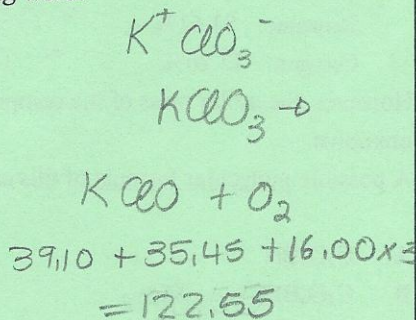 K⁺ ClO₃⁻
KClO₃ →
KClO + O₂
39,10 + 35,45 + 16.00 x 3
= 122.55